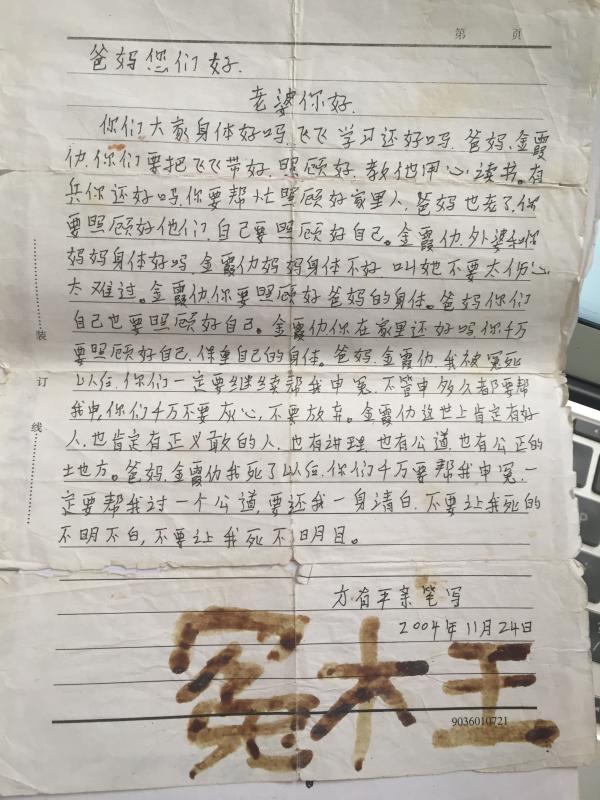 第 页
爸妈您们好.
老婆你好.
你们大家身体好吗,飞飞学习还好吗.爸妈、金霞
仂,你们要把飞飞带好,照顾好,教他用心读书。有
兵你还好吗,你要帮忙照顾好家里人,爸妈也老了,你
要照顾好他们,自己要照顾好自己。金霞仂,外婆和你
妈妈身体好吗,金霞仂妈妈身体不好 叫她不要太伤心
太难过。金霞仂,你要照顾好爸妈的身体。爸妈你们
自己也要照顾好自己。金霞仂你在家里还好吗,你千万
要照顾好自己,保重自己的身体。爸妈,金霞仂,我被冤死
以后,你们一定要继续帮我申冤,不管申多久都要帮
我申,你们千万不要灰心,不要放弃。金霞仂这世上肯定有好
人,也肯定有正义敢的人,也有讲理,也有公道,也有公正的
土地方。爸妈,金霞仂我死了以后,你们千万要帮我申冤,一
定要帮我讨一个公道,要还我一身清白,不要让我死的
不明不白,不要让我死不明目。
方有平亲笔写
2004年11月24日
冤大王
9036010721
装
订
线